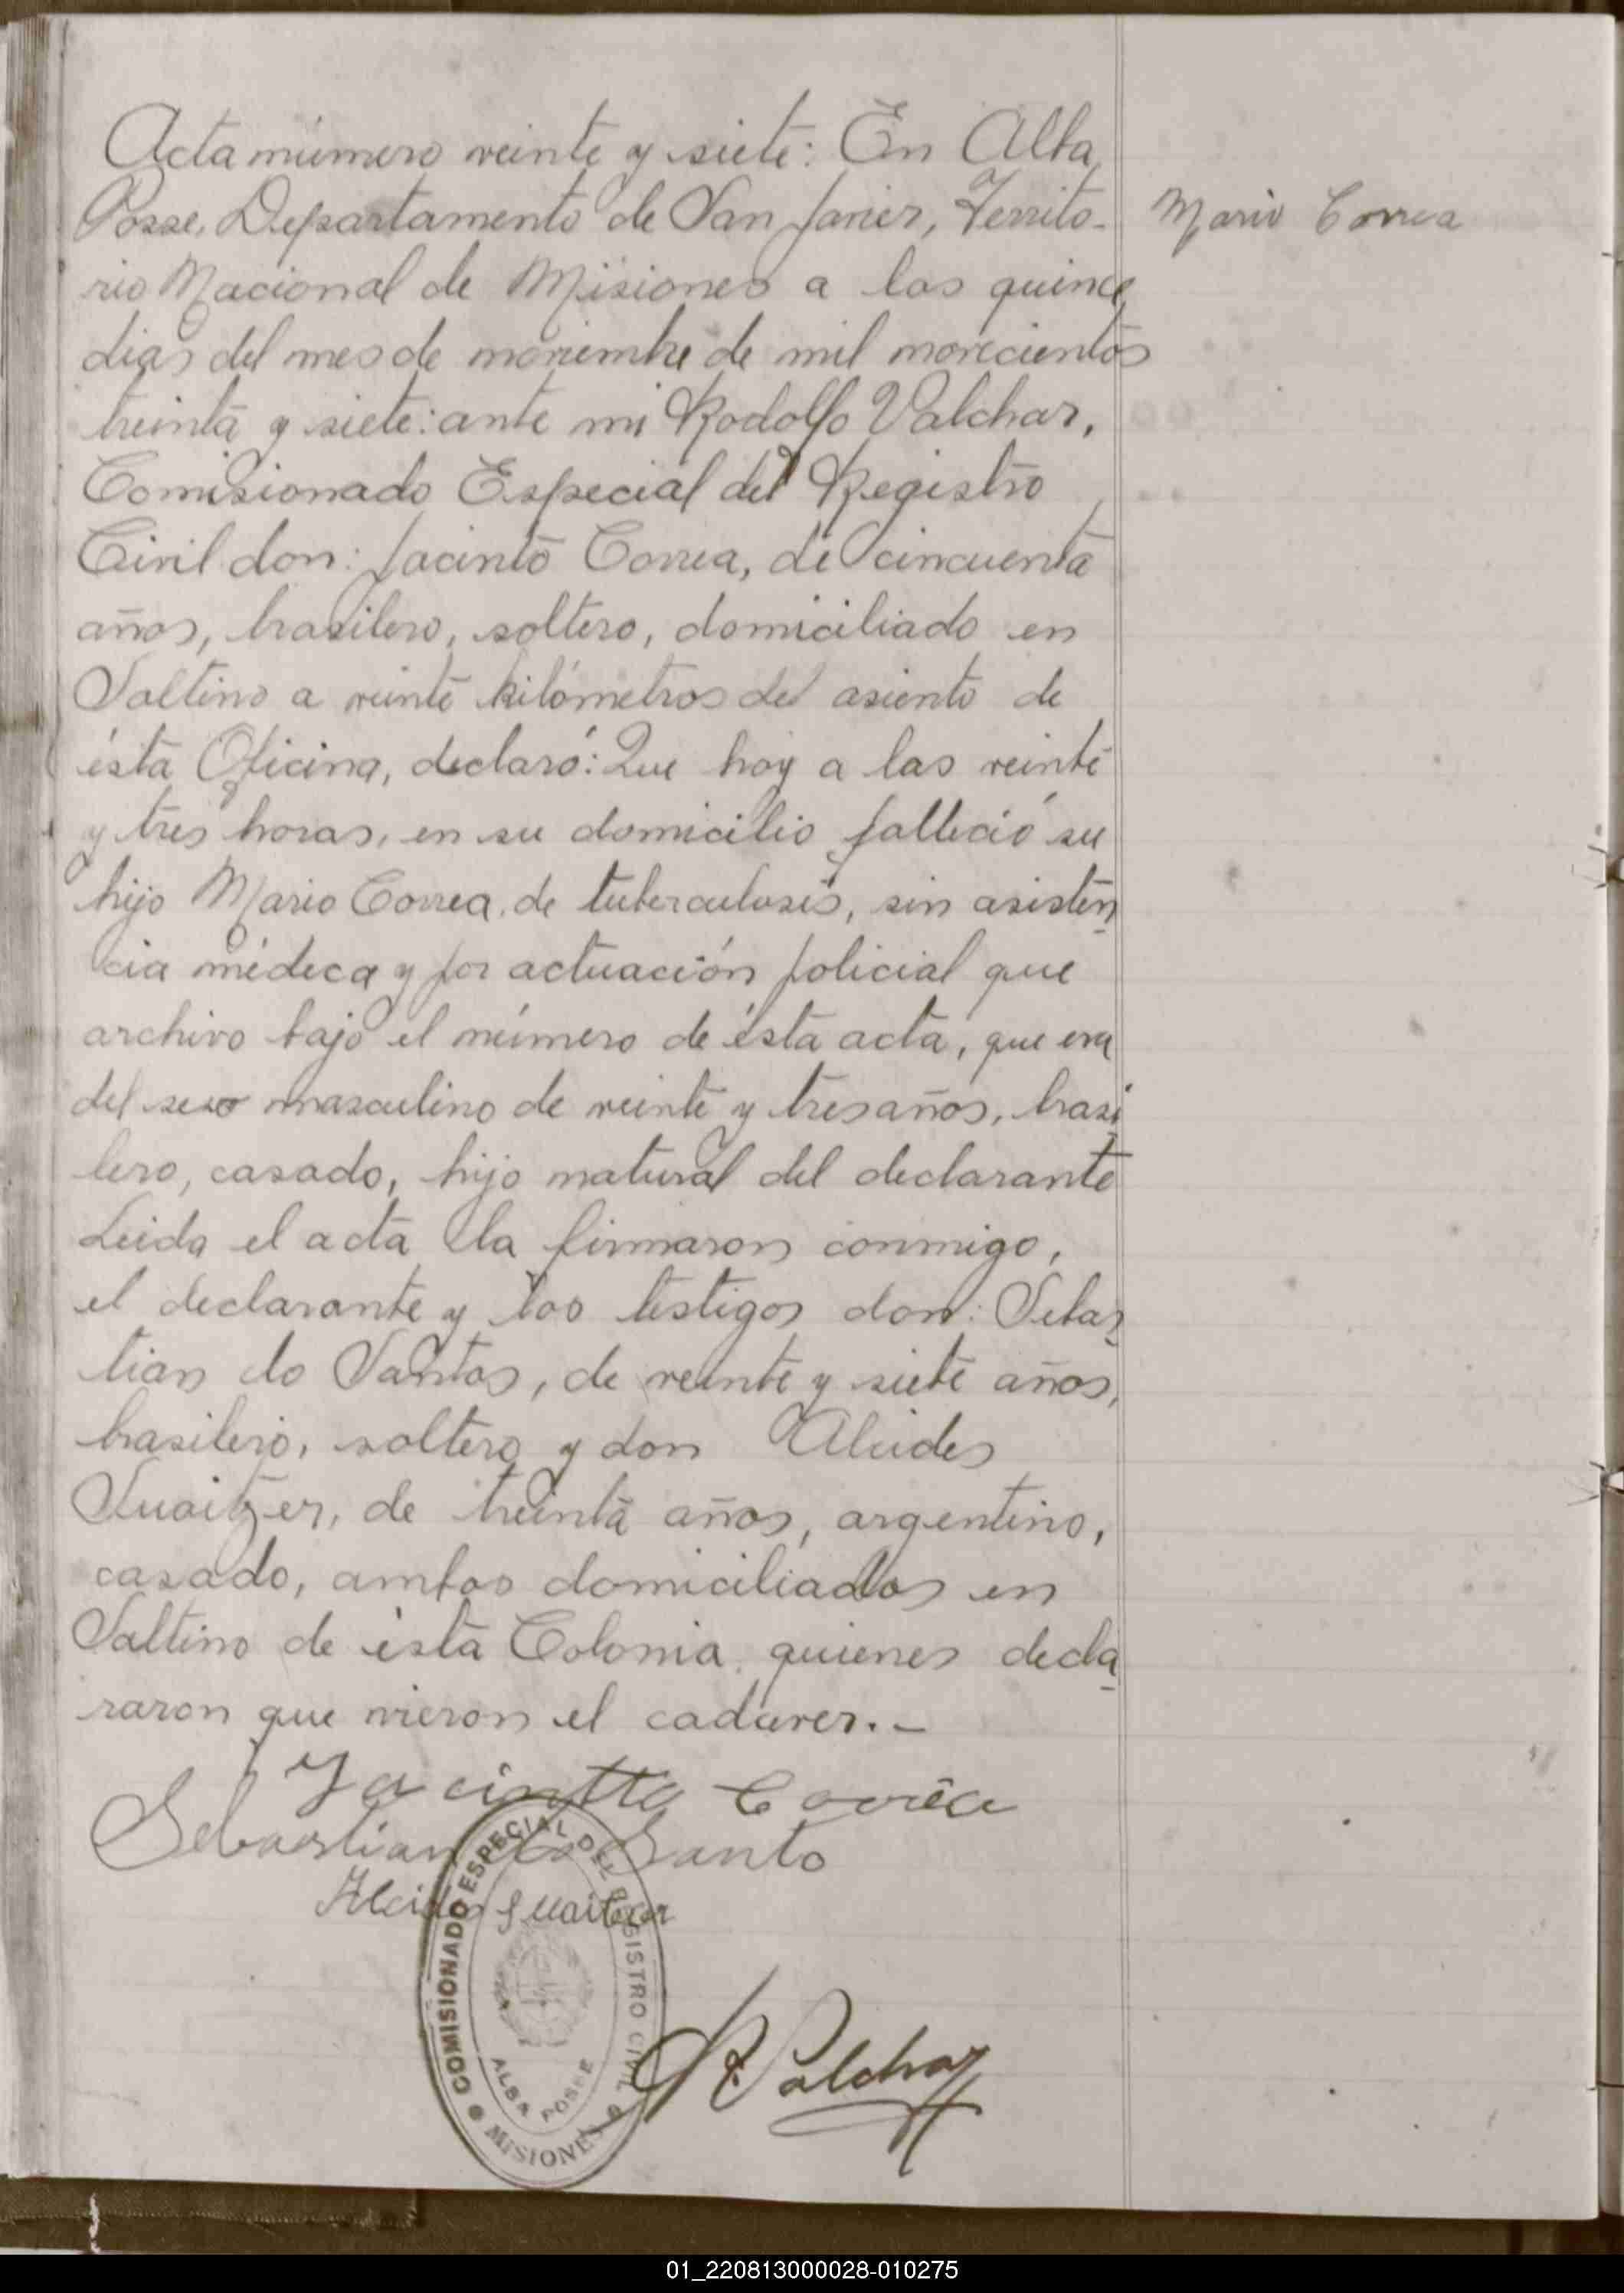 Acta número veinte y siete: En Alba
Posse, Departamento de San Javier, Territo-
rio Nacional de Misiones a los quince
dias del mes de noviembre de mil novecientos
treinta y siete: ante mi Rodolfo Valchar,
Comisionado Especial del Registro
Civil don: Jacinto Correa, de cincuenta
años, brasilero, soltero, domiciliado en
Saltino a veinte kilómetros del asiento de
ésta Oficina, declaró: Que hoy a las veinte
y tres horas, en su domicilio falleció su
hijo Mario Correa, de tuberculosis, sin asisten
cia médeca y por actuación policial que
archivo bajo el número de ésta acta, que era
del sexo masculino de veinte y tres años, brasi
lero, casado, hijo natural del declarante
Leida el acta la firmaron conmigo,
el declarante y los testigos don: Sebas
tian do Santos, de veinte y siete años,
brasilero, soltero y don Alcides
Suaitzer, de treinta años, argentino,
casado, ambos domiciliados en
Saltino de ésta Colonia, quienes decla
raron que vieron el cadaver.-
Jacintto Corrêa
Sebastian do Santo
Alcides
R. Valchar
COMISIONADO ESPECIAL DEL REGISTRO CIVIL
ALBA POSSE
MISIONES
Mario Correa
01_220813000028-010275